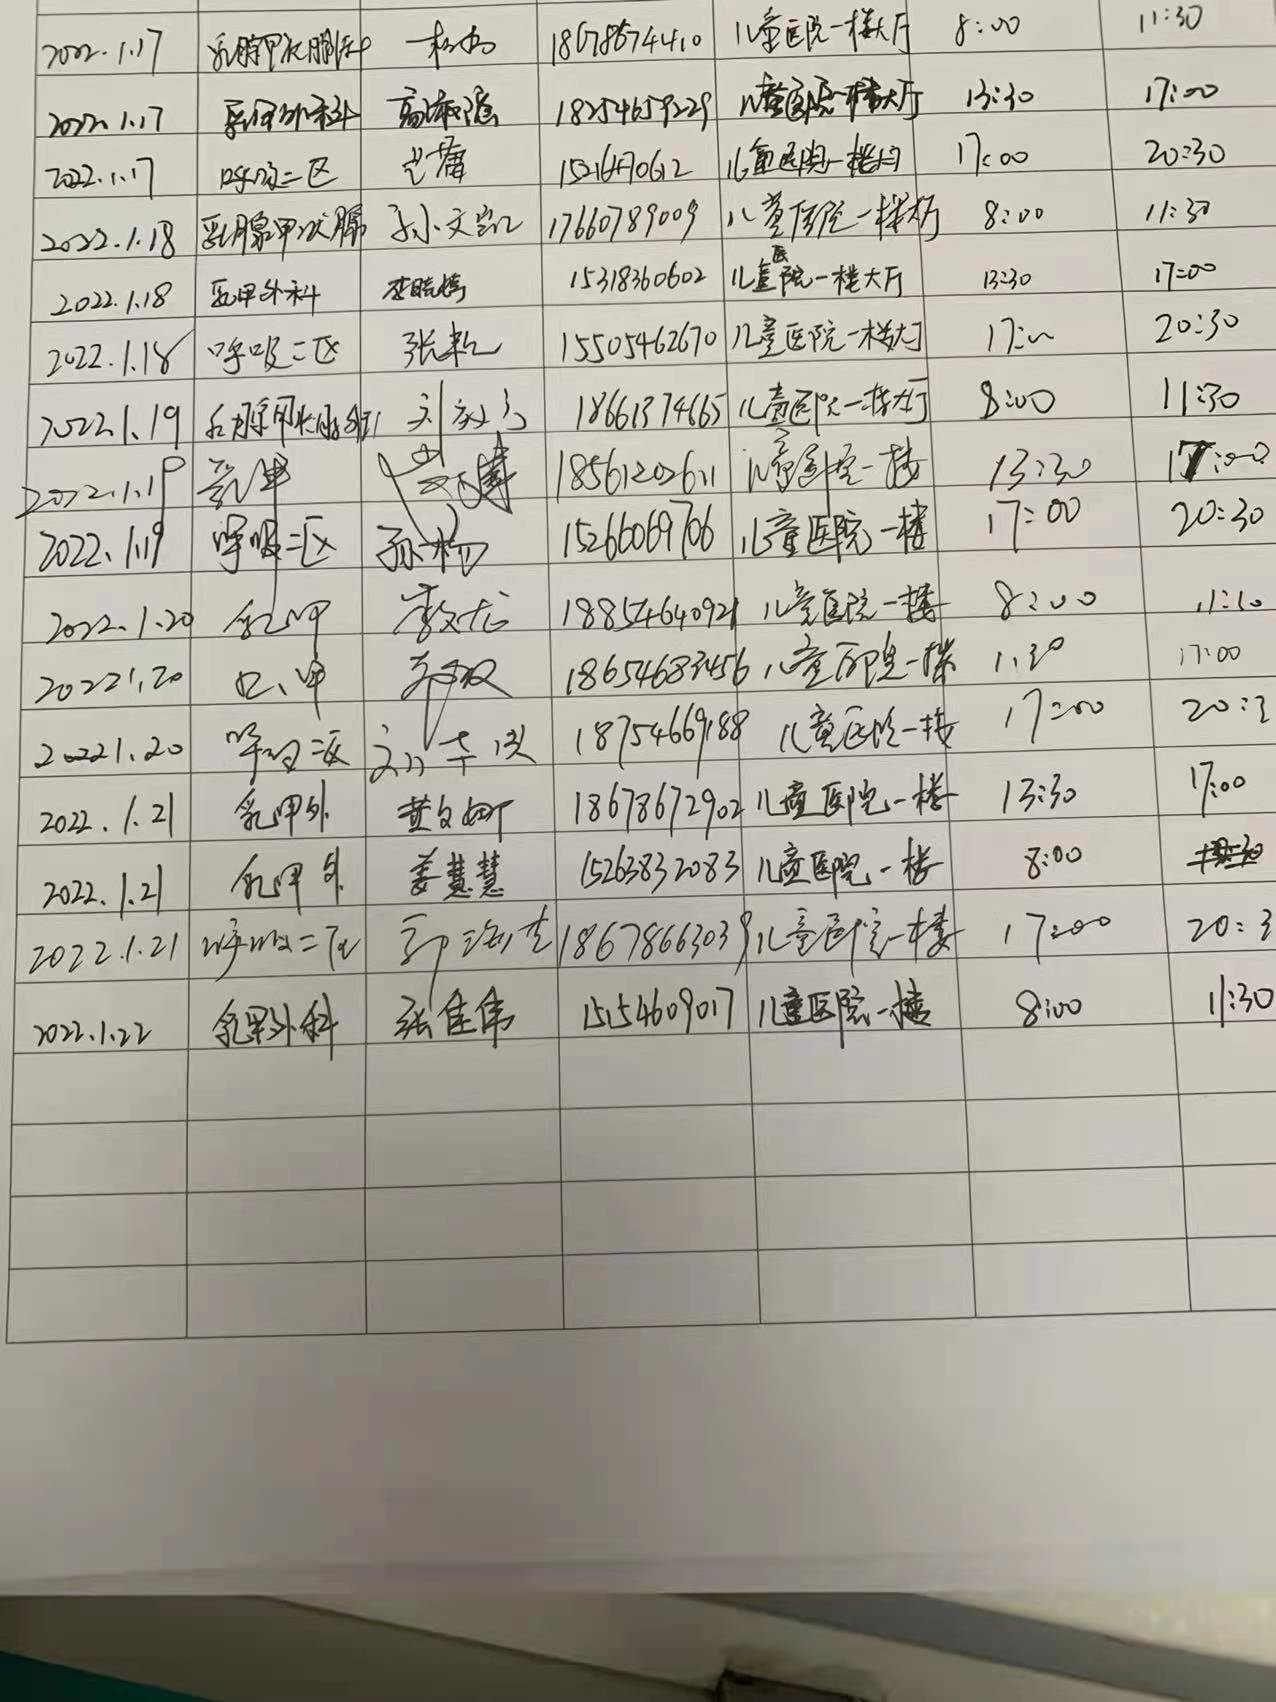 2022.1.17 乳腺甲状腺科 18678674410 儿童医院一楼大厅 8:00 11:30
2022.1.17 乳甲外科 18254659229 儿童医院一楼大厅 13:30 17:00
2022.1.17 呼吸二区 15216470612 儿童医院一楼大厅 17:00 20:30
2022.1.18 乳腺甲状腺 孙文凯 17660789009 儿童医院一楼大厅 8:00 11:30
2022.1.18 乳甲外科 李晓婷 15318360602 儿童医院一楼大厅 13:30 17:00
2022.1.18 呼吸二区 张乾 15505462670 儿童医院一楼大厅 17:00 20:30
2022.1.19 乳腺甲状腺 18661374665 儿童医院一楼大厅 8:00 11:30
2022.1.19 乳甲 18561202611 儿童医院一楼 13:30 17:00
2022.1.19 呼吸二区 孙杨 15266069706 儿童医院一楼 17:00 20:30
2022.1.20 乳甲 李文龙 18854640921 儿童医院一楼 8:00
2022.1.20 乳甲 18654683456 儿童医院一楼 1:30 17:00
2022.1.20 呼吸二区 18754669188 儿童医院一楼 17:00 20:3
2022.1.21 乳甲外 黄文娜 18678672902 儿童医院一楼 13:30 17:00
2022.1.21 乳甲外 姜慧慧 15263832083 儿童医院一楼 8:00
2022.1.21 呼吸二区 18678663039 儿童医院一楼 17:00 20:3
2022.1.22 乳甲外科 张佳伟 15154609017 儿童医院一楼 8:00 11:30